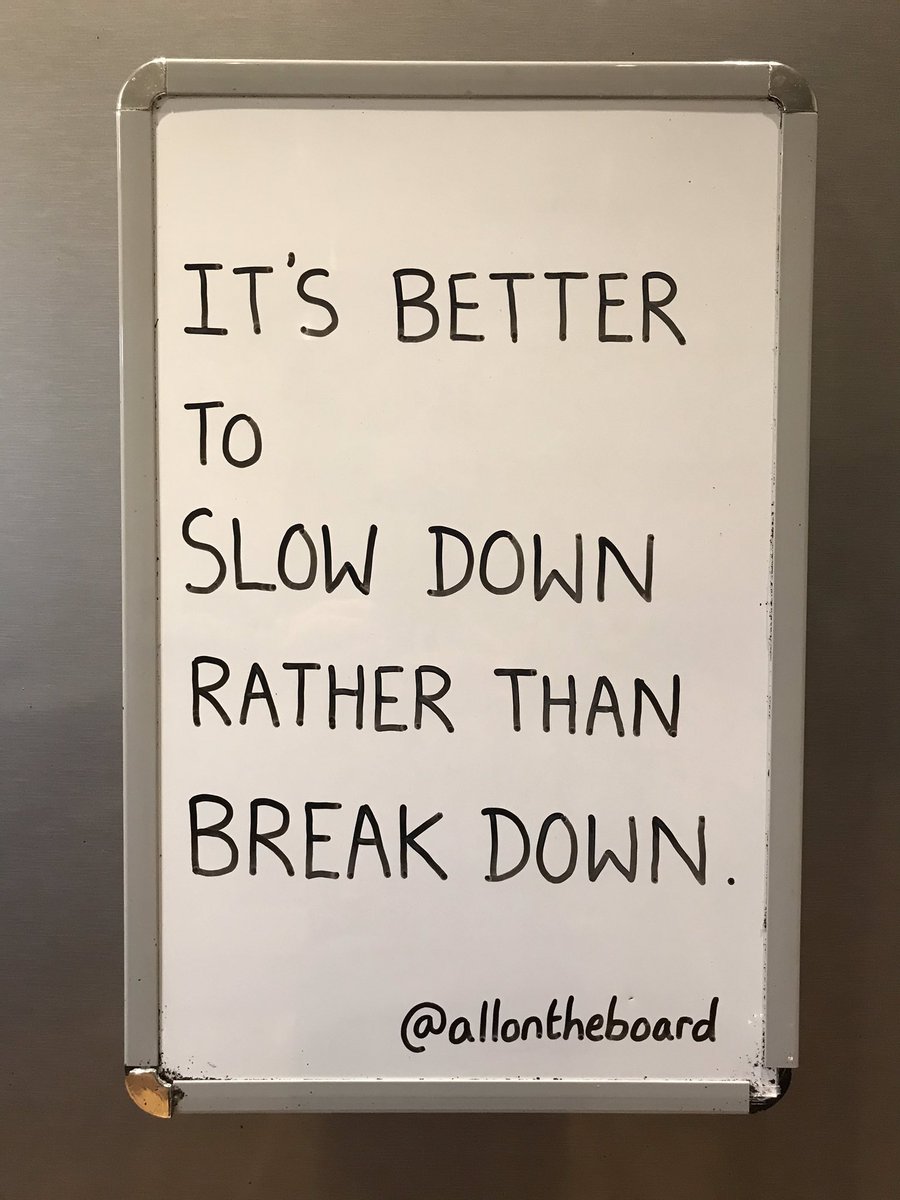 IT'S BETTER
TO
SLOW DOWN
RATHER THAN
BREAK DOWN.
@allontheboard